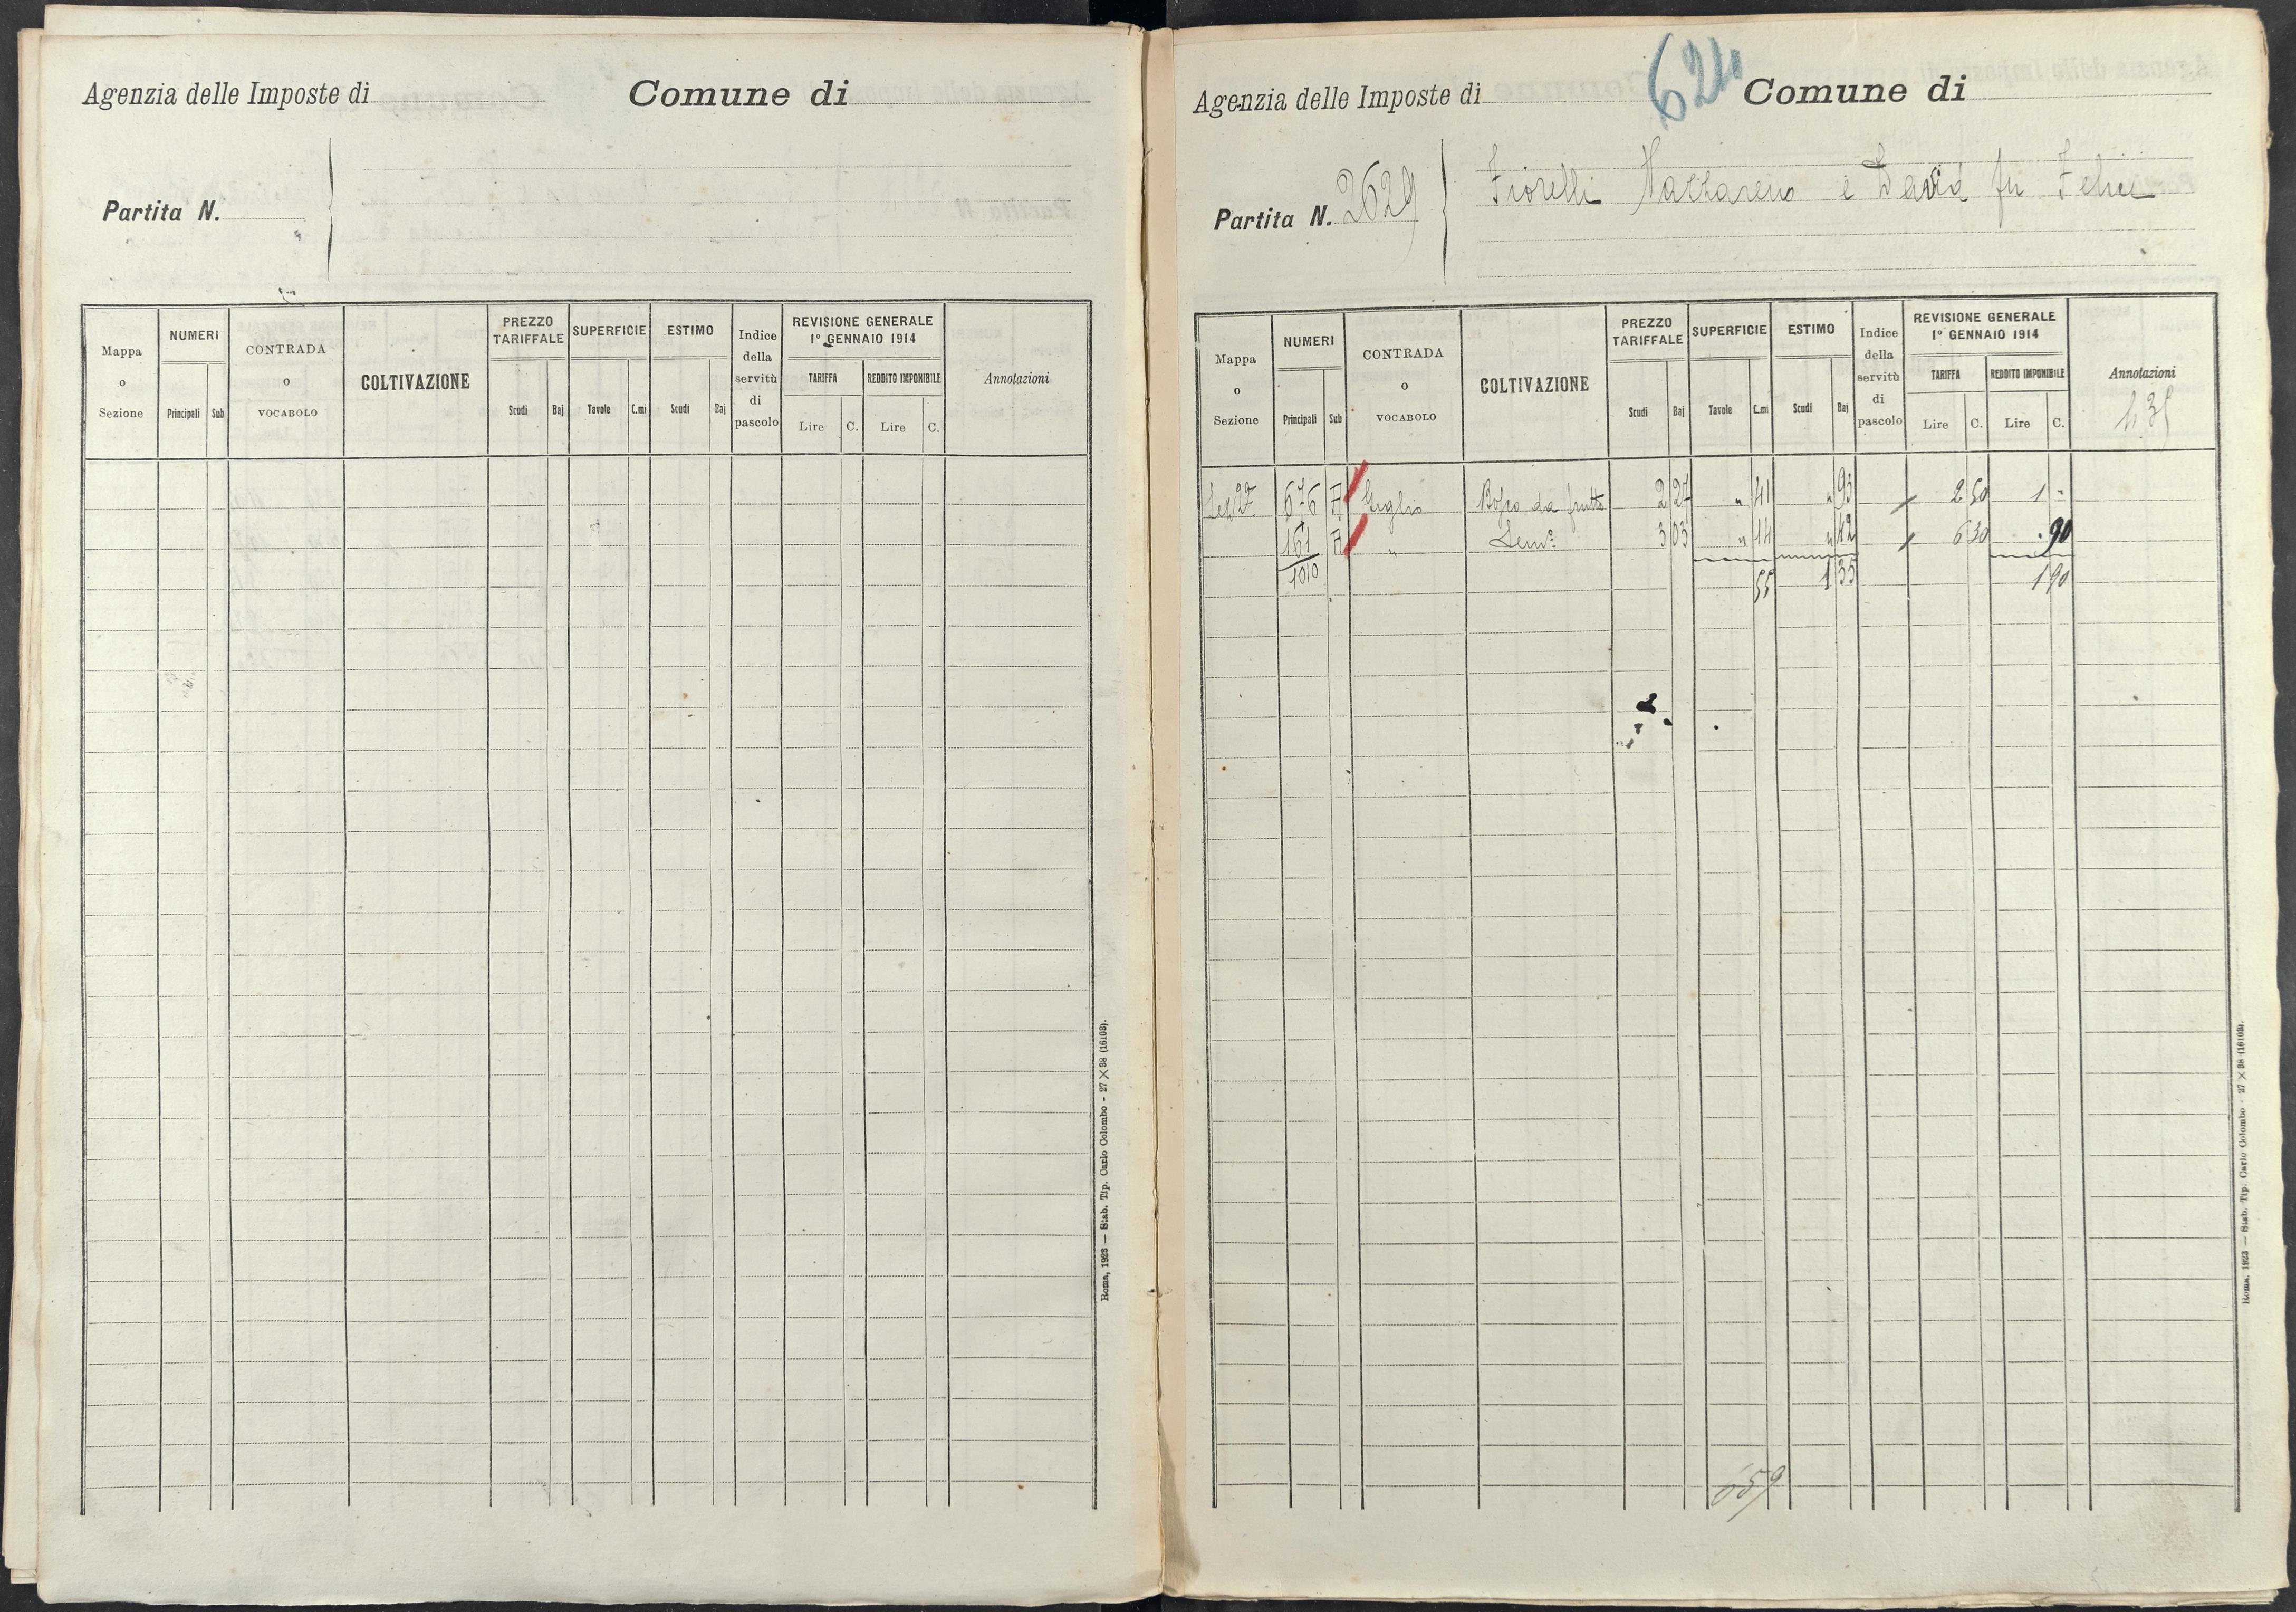 Agenzia delle Imposte di
Comune di
Partita N.
Mappa o Sezione
NUMERI
Principali
Sub
CONTRADA o VOCABOLO
COLTIVAZIONE
PREZZO TARIFFALE
Scudi
Baj
SUPERFICIE
Tavole
C.mi
ESTIMO
Scudi
Baj
Indice della servitù di pascolo
REVISIONE GENERALE
1° GENNAIO 1914
TARIFFA
Lire
C.
REDDITO IMPONIBILE
Lire
C.
Annotazioni
Roma, 1923 — Stab. Tip. Carlo Colombo - 27 X 38 (16103).
624
Agenzia delle Imposte di
Comune di
Partita N. 2629
Fiorelli Nazzareno e David fu Felice
Mappa o Sezione
NUMERI
Principali
Sub
CONTRADA o VOCABOLO
COLTIVAZIONE
PREZZO TARIFFALE
Scudi
Baj
SUPERFICIE
Tavole
C.mi
ESTIMO
Scudi
Baj
Indice della servitù di pascolo
REVISIONE GENERALE
1° GENNAIO 1914
TARIFFA
Lire
C.
REDDITO IMPONIBILE
Lire
C.
Annotazioni
Sez 2ª 676 A Bosco da frutto 2 27 " 41 " 93 2 50 1 -
161/1010 A " Semo 3 03 " 14 " 42 6 30 . 90
55 1 35 1 90
659
Roma, 1923 — Stab. Tip. Carlo Colombo - 27 X 38 (16103).